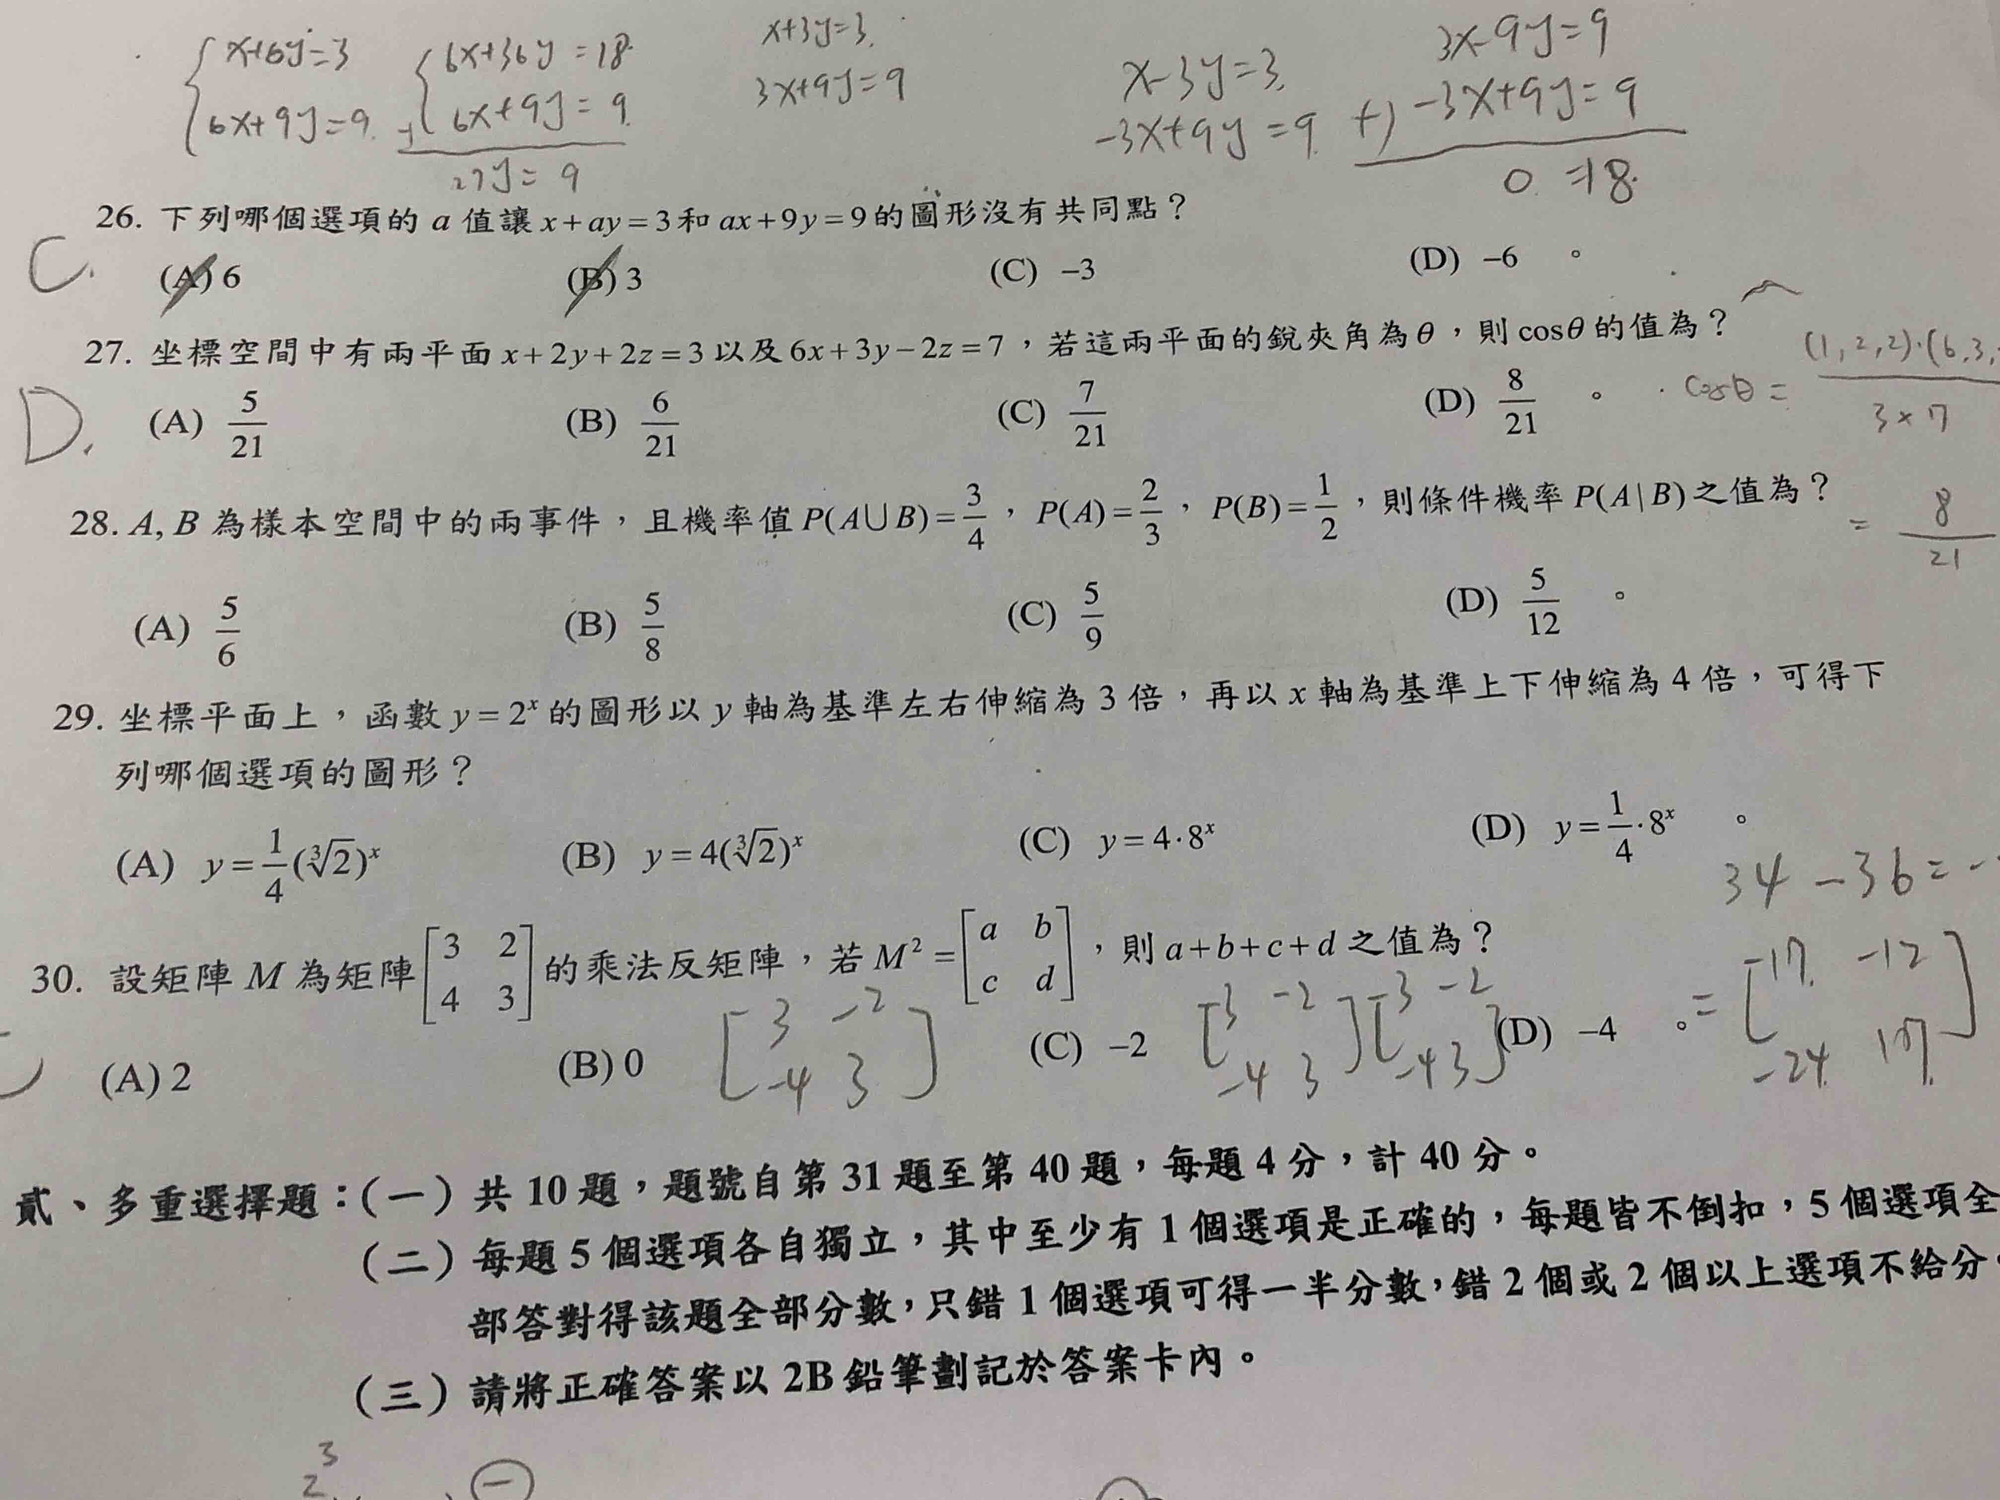 x+6y=3
6x+9y=9
6x+36y=18
6x+9y=9
27y=9
x+3y=3
3x+9y=9
x-3y=3
-3x+9y=9
3x-9y=9
+) -3x+9y=9
0=18
26. 下列哪個選項的 a 值讓 x+ay=3和 ax+9y=9的圖形沒有共同點？
C.
(A) 6 (B) 3 (C) −3 (D) −6 。
27. 坐標空間中有兩平面 x+2y+2z=3以及 6x+3y−2z=7，若這兩平面的銳夾角為θ，則 cosθ的值為？
D.
(A) 5/21 (B) 6/21 (C) 7/21 (D) 8/21 。
cosθ = (1,2,2)·(6,3,
3×7
= 8/21
28. A, B 為樣本空間中的兩事件，且機率值 P(A∪B)=3/4，P(A)=2/3，P(B)=1/2，則條件機率 P(A|B)之值為？
(A) 5/6 (B) 5/8 (C) 5/9 (D) 5/12 。
29. 坐標平面上，函數 y=2^x 的圖形以 y 軸為基準左右伸縮為 3 倍，再以 x 軸為基準上下伸縮為 4 倍，可得下
列哪個選項的圖形？
(A) y=1/4(∛2)^x (B) y=4(∛2)^x (C) y=4·8^x (D) y=1/4·8^x 。
34-36=-
30. 設矩陣 M 為矩陣[3 2; 4 3]的乘法反矩陣，若 M²=[a b; c d]，則 a+b+c+d 之值為？
(A) 2 (B) 0 (C) −2 (D) −4 。
[3 -2; -4 3]
[3 -2; -4 3][3 -2; -4 3]
=[17 -12; -24 17]
貳、多重選擇題：(一) 共 10 題，題號自第 31 題至第 40 題，每題 4 分，計 40 分。
(二) 每題 5 個選項各自獨立，其中至少有 1 個選項是正確的，每題皆不倒扣，5 個選項全
部答對得該題全部分數，只錯 1 個選項可得一半分數，錯 2 個或 2 個以上選項不給分
(三) 請將正確答案以 2B 鉛筆劃記於答案卡內。
2^3